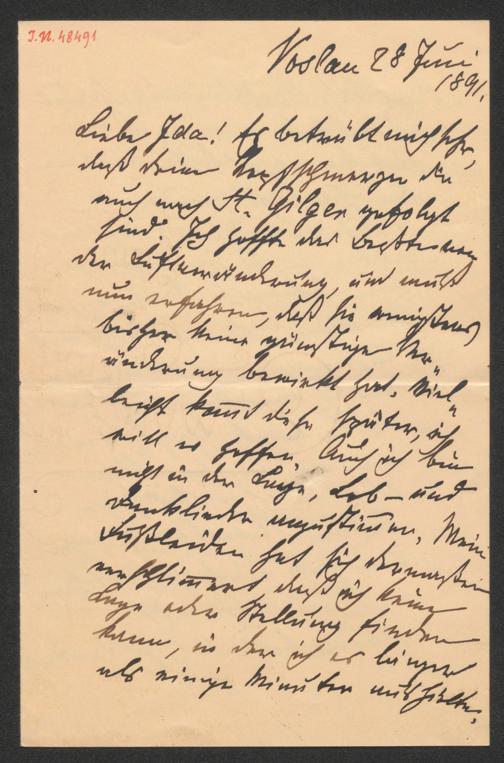 J.N. 48491
Voslau 28 Juni
1891.
Liebe Ida! Es betrübt mich sehr,
daß deine Kopfschmerzen dir
auch nach St. Gilgen gefolgt
sind. Ich hoffte das Beste von
der Luftveränderung, und muß
nun erfahren, daß sie wenigstens
bisher keine günstige Ver
änderung bewirkt hat. Viel
leicht kom̅t diese später, ich
will es hoffen. Auch ich bin
nicht in der Lage, Lob- und
Danklieder anzustim̅en. Mein
Fußleiden hat sich dermaßen
verschlim̅ert daß ich keine
Lage oder Stellung finden
kann, in der ich es länger
als einige Minuten aushielte.